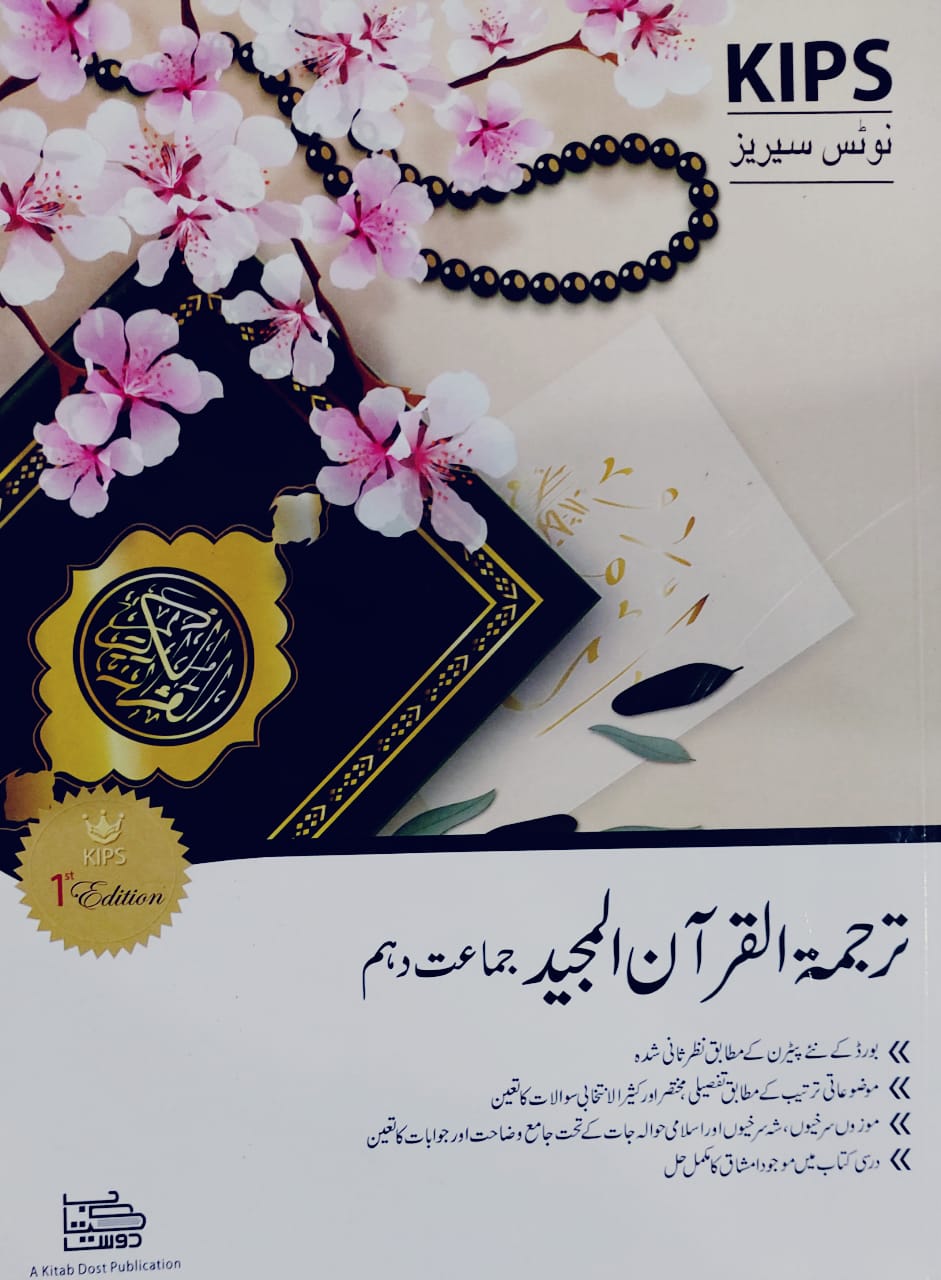 KIPS
نوٹس سیریز
القرآن الكريم
KIPS
1st Edition
ترجمۃ القرآن المجید جماعت دہم
بورڈ کے نئے پیٹرن کے مطابق نظر ثانی شدہ
موضوعاتی ترتیب کے مطابق تفصیلی، مختصر اور کثیر الانتخابی سوالات کا تعین
موزوں سرخیوں، شہ سرخیوں اور اسلامی حوالہ جات کے تحت جامع وضاحت اور جوابات کا تعین
درسی کتاب میں موجود امشاق کا مکمل حل
کتاب
دوست
A Kitab Dost Publication